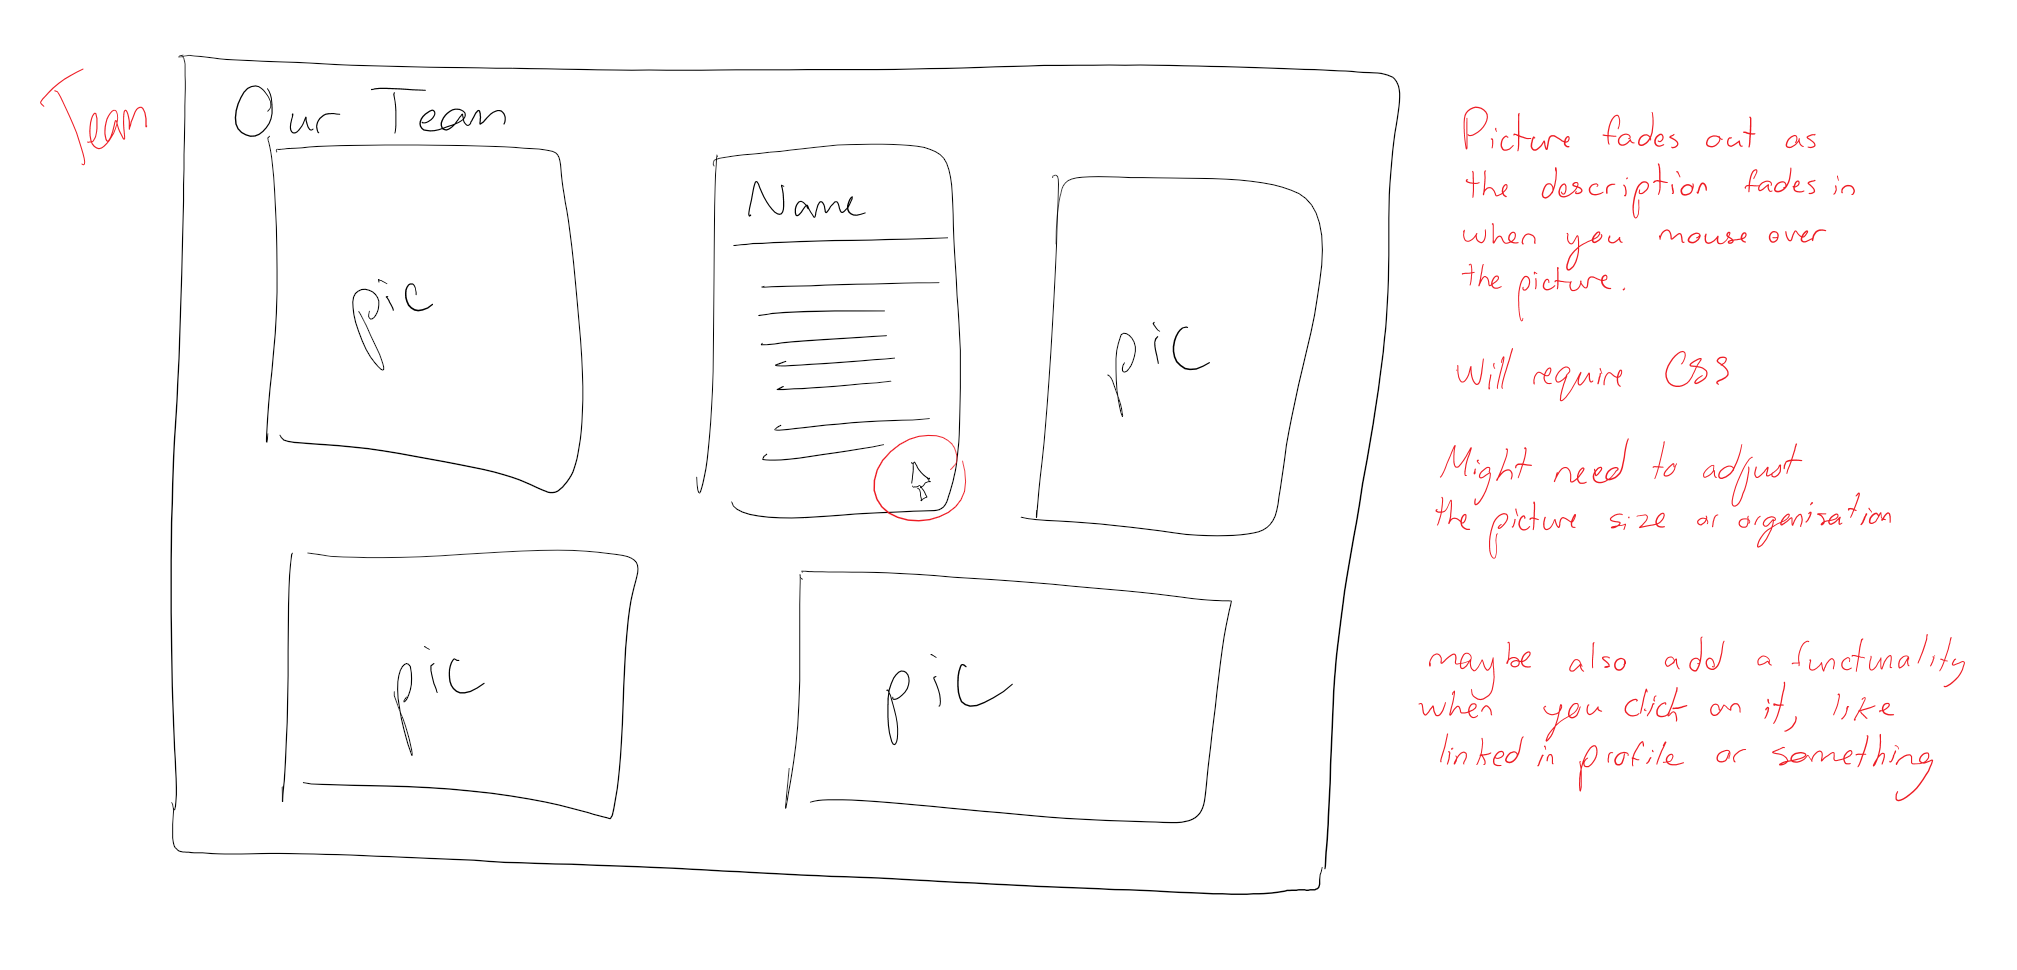 Team
Our Team
pic
Name
pic
pic
pic
Picture fades out as
the description fades in
when you mouse over
the picture.
Will require CSS
Might need to adjust
the picture size or organisation
maybe also add a functunality
when you click on it, like
linked in profile or something